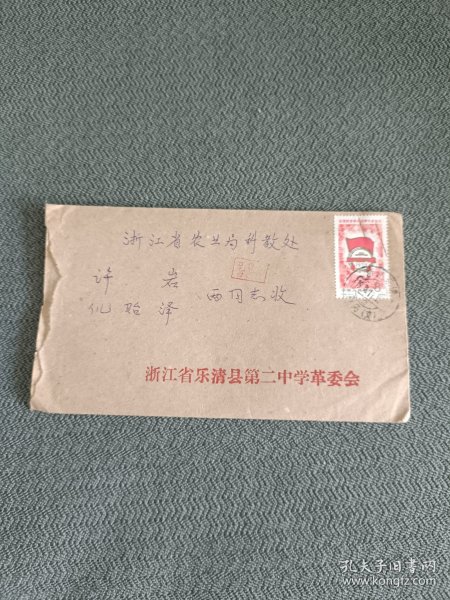 浙江省农业局科教处
许岩
仉贻泽
两同志收
浙江省乐清县第二中学革委会
孔夫子旧书网
www.kongfz.com